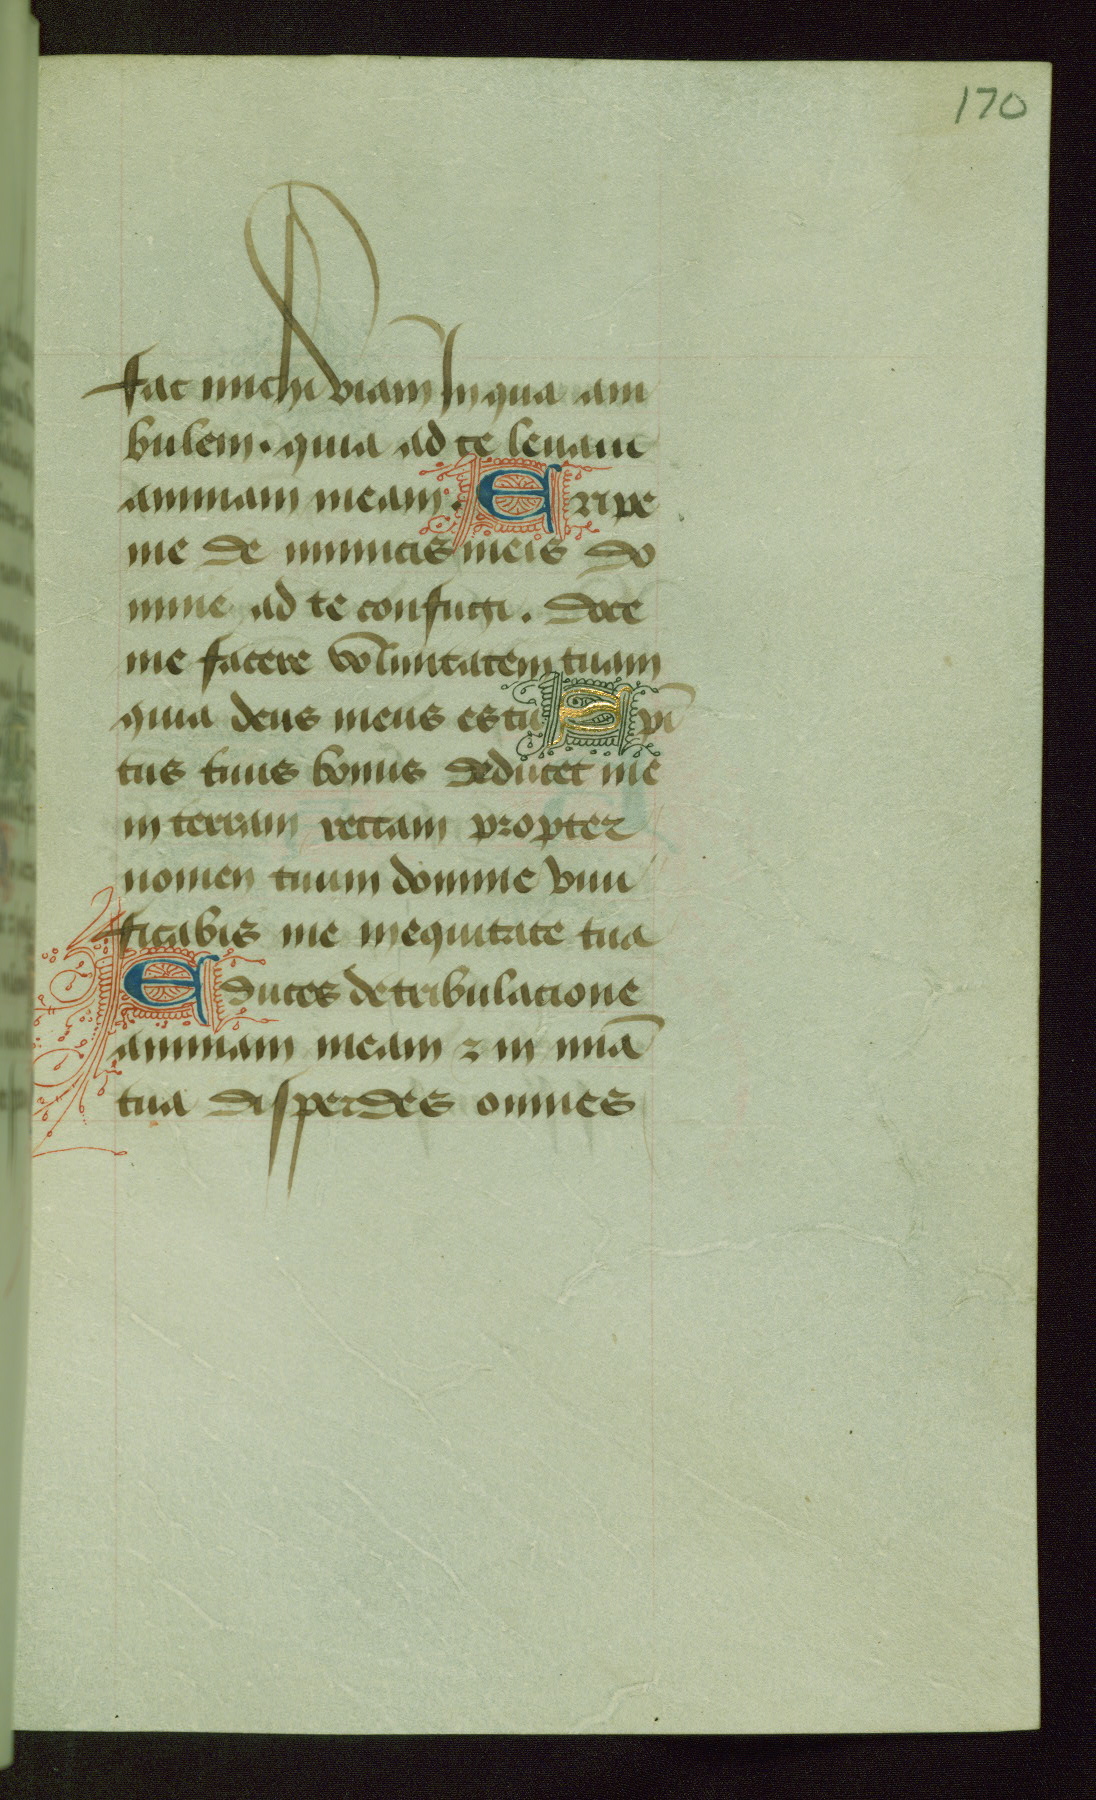 170
fac michi viam in qua am
bulem. quia ad te levavi
animam meam. Eripe
me de inimicis meis do
mine ad te confugi. Doce
me facere voluntatem tuam
quia deus meus es tu Spi
tus tuus bonus deducet me
in terram rectam propter
nomen tuum domine vivi
ficabis me in equitate tua
Educes de tribulatione
animam meam ⁊ in mīa
tua disperdes omnes